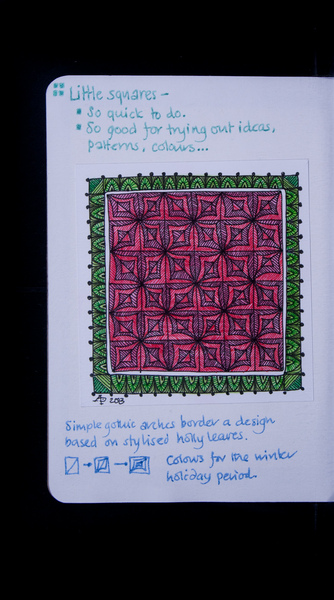 Little squares -
So quick to do.
So good for trying out ideas,
patterns, colours...
AP 2013
Simple gothic arches border a design
based on stylised holly leaves.
Colours for the winter
holiday period.